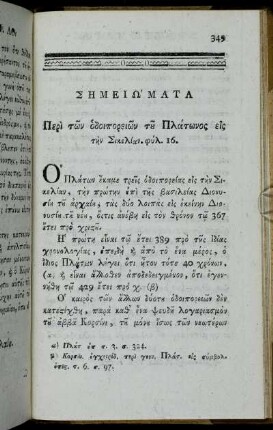 349
ΣΗΜΕΙΩΜΑΤΑ
Περὶ τῶν ὁδοιποριῶν τοῦ Πλάτωνος εἰς
τὴν Σικελίαν. φύλ. 16.
Ὁ Πλάτων ἔκαμε τρεῖς ὁδοιπορίας εἰς τὴν Σι-
κελίαν, τὴν πρώτην ἐπὶ τῆς βασιλείας Διονυ-
σίου τοῦ ἀρχαίου, τὰς δύο λοιπὰς εἰς ἐκείνην Διο-
νυσίου τοῦ νέου, ὅστις ἀνέβη εἰς τὸν θρόνον τῷ 367
ἔτει πρὸ χριστοῦ.
Ἡ πρώτη εἶναι τῷ ἔτει 389 πρὸ τῆς ἰδίας
χρονολογίας, ἐπειδὴ ἢ ἀπὸ τὸ ἕνα μέρος, ὁ
ἴδιος Πλάτων λέγει, ὅτι ἦτον τότε 40 χρόνων,
(α) ἢ εἶναι ἄλλοθεν ἀποδεδειγμένον, ὅτι ἐγεν-
νήθη τῷ 429 ἔτει πρὸ χ. (β)
Ὁ καιρὸς τῶν ἄλλων δύο ὁδοιποριῶν δὲν
κατεζητήθη, παρὰ καθ' ἕνα ψευδῆ λογαριασμὸν
τοῦ ἀββᾶ Κορσίνη, τοῦ μόνου ἴσως τῶν νεωτέρων
α) Πλάτ. ἐπ. π. 3. σ. 324.
β) Κορσίν. περὶ γενν. Πλάτ. εἰς συμβολ.
π. 6. σ. 97.